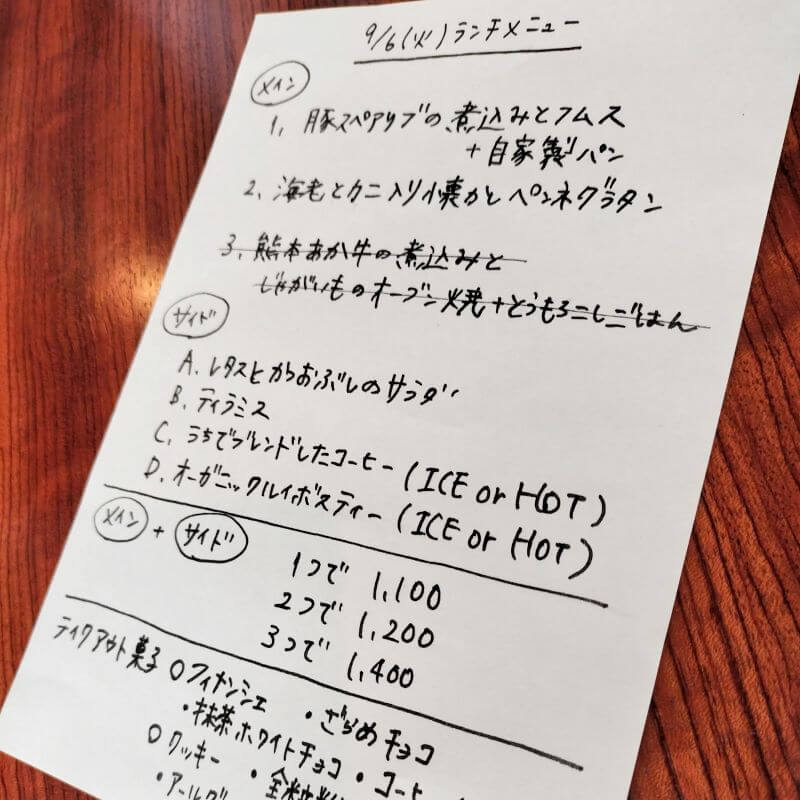 9/6(火)ランチメニュー
メイン
1. 豚スペアリブの煮込みとフムス
+自家製パン
2. 海老とカニ入り小懐かしペンネグラタン
3. 熊本あか牛の煮込みと
じゃがいものオーブン焼+とうもろこしごはん
サイド
A. レタスとかつおぶしのサラダ
B. ティラミス
C. うちでブレンドしたコーヒー(ICE or HOT)
D. オーガニックルイボスティー(ICE or HOT)
メイン + サイド
1つで 1,100
2つで 1,200
3つで 1,400
テイクアウト菓子 ○フィナンシェ ・ざらめチョコ
・抹茶ホワイトチョコ ・コーヒ
○クッキー ・全粒
・アールグ